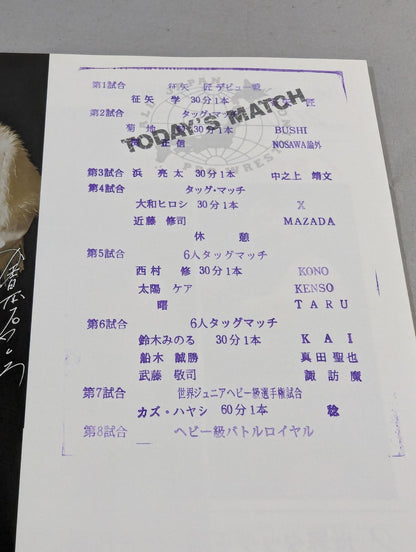 第1試合 征矢 匠デビュー戦
征矢 学 30分1本 匠
TODAY'S MATCH
第2試合 タッグ・マッチ
菊地 30分1本 BUSHI
正信 NOSAWA論外
第3試合 浜 亮太 30分1本 中之上 靖文
第4試合 タッグ・マッチ
大和ヒロシ 30分1本 X
近藤 修司 MAZADA
休 憩
第5試合 6人タッグマッチ
西村 修 30分1本 KONO
太陽 ケア KENSO
曙 TARU
第6試合 6人タッグマッチ
鈴木みのる 30分1本 KAI
船木 誠勝 真田聖也
武藤 敬司 諏訪魔
第7試合 世界ジュニアヘビー級選手権試合
カズ・ハヤシ 60分1本 稔
第8試合 ヘビー級バトルロイヤル